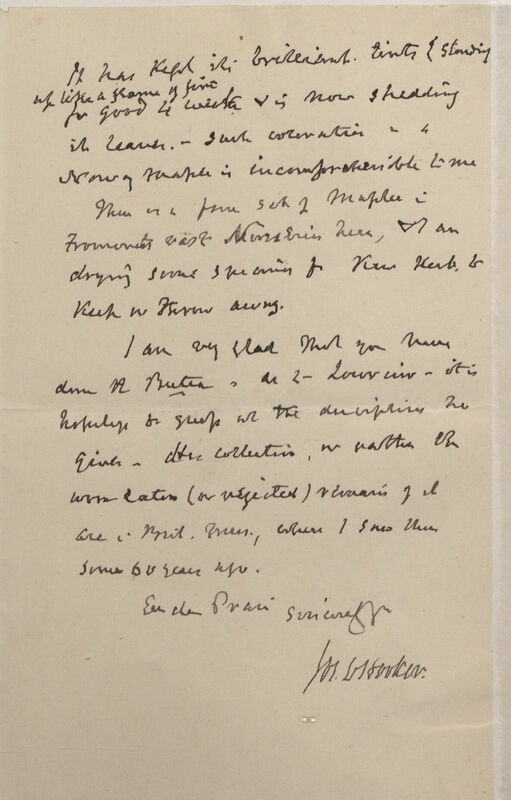 It has kept its brilliant tints & standing
up like a flame of fire
for good 4 weeks & is now shedding
its leaves. – Such coloration in a
Norway maple is incomprehensible to me
There is a fine set of Maples in
Fromonts vast Nurseries here, & I am
drying some specimens for Kew Herb. to
keep or throw away.
I am very glad that you have
done the as to Loureiro – it is
hopeless to guess at the descriptions he
gives – His collection, or rather the
worm eaten (or rejected) remains of it
are in Brit. Mus., where I saw them
some 60 years ago.
Prain sincerely yrs
Jos. D Hooker.